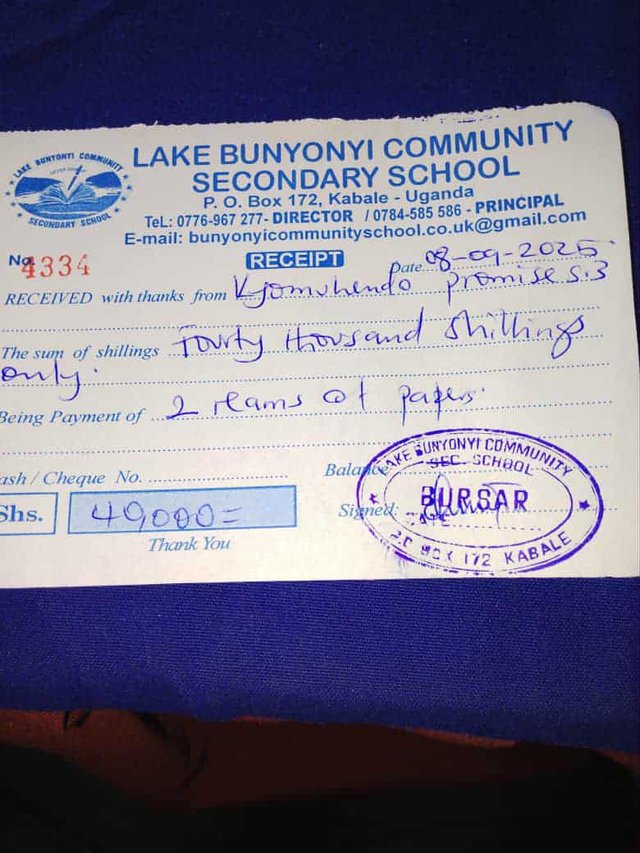 LAKE BUNYONYI COMMUNITY
SECONDARY SCHOOL
LAKE BUNYONYI COMMUNITY
SECONDARY SCHOOL
P. O. Box 172, Kabale - Uganda
TeL: 0776-967 277- DIRECTOR / 0784-585 586 - PRINCIPAL
E-mail: bunyonyicommunityschool.co.uk@gmail.com
No 4334
RECEIPT
Date 08-09-2025
RECEIVED with thanks from Kyomuhendo promise S.3
The sum of shillings Fourty thousand shillings
only.
Being Payment of 2 reams of papers.
ash / Cheque No.
Balance
Shs. 40,000=
Signed:
Thank You
LAKE BUNYONYI COMMUNITY
SEC. SCHOOL
BURSAR
P.O BOX 172 KABALE